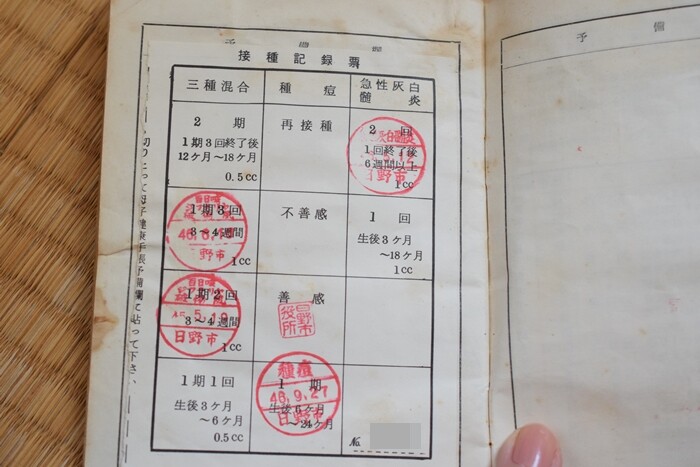 予備
接種記録票
三種混合
種痘
急性灰白
髄炎
2期
1期3回終了後
12ケ月〜18ケ月
0.5cc
再接種
2回
1回終了後
6週間以上
1cc
日野市
1期3回
3〜4週間
1cc
野市
不善感
1回
生後3ケ月
〜18ケ月
1cc
1期2回
5.19
3〜4週間
1cc
日野市
善感
日野市
役所
1期1回
生後3ケ月
〜6ケ月
0.5cc
種痘
1期
46.9.27
生後6ケ月
〜24ケ月
日野市
№
切りとって母子健康手帳予備欄に貼って下さい